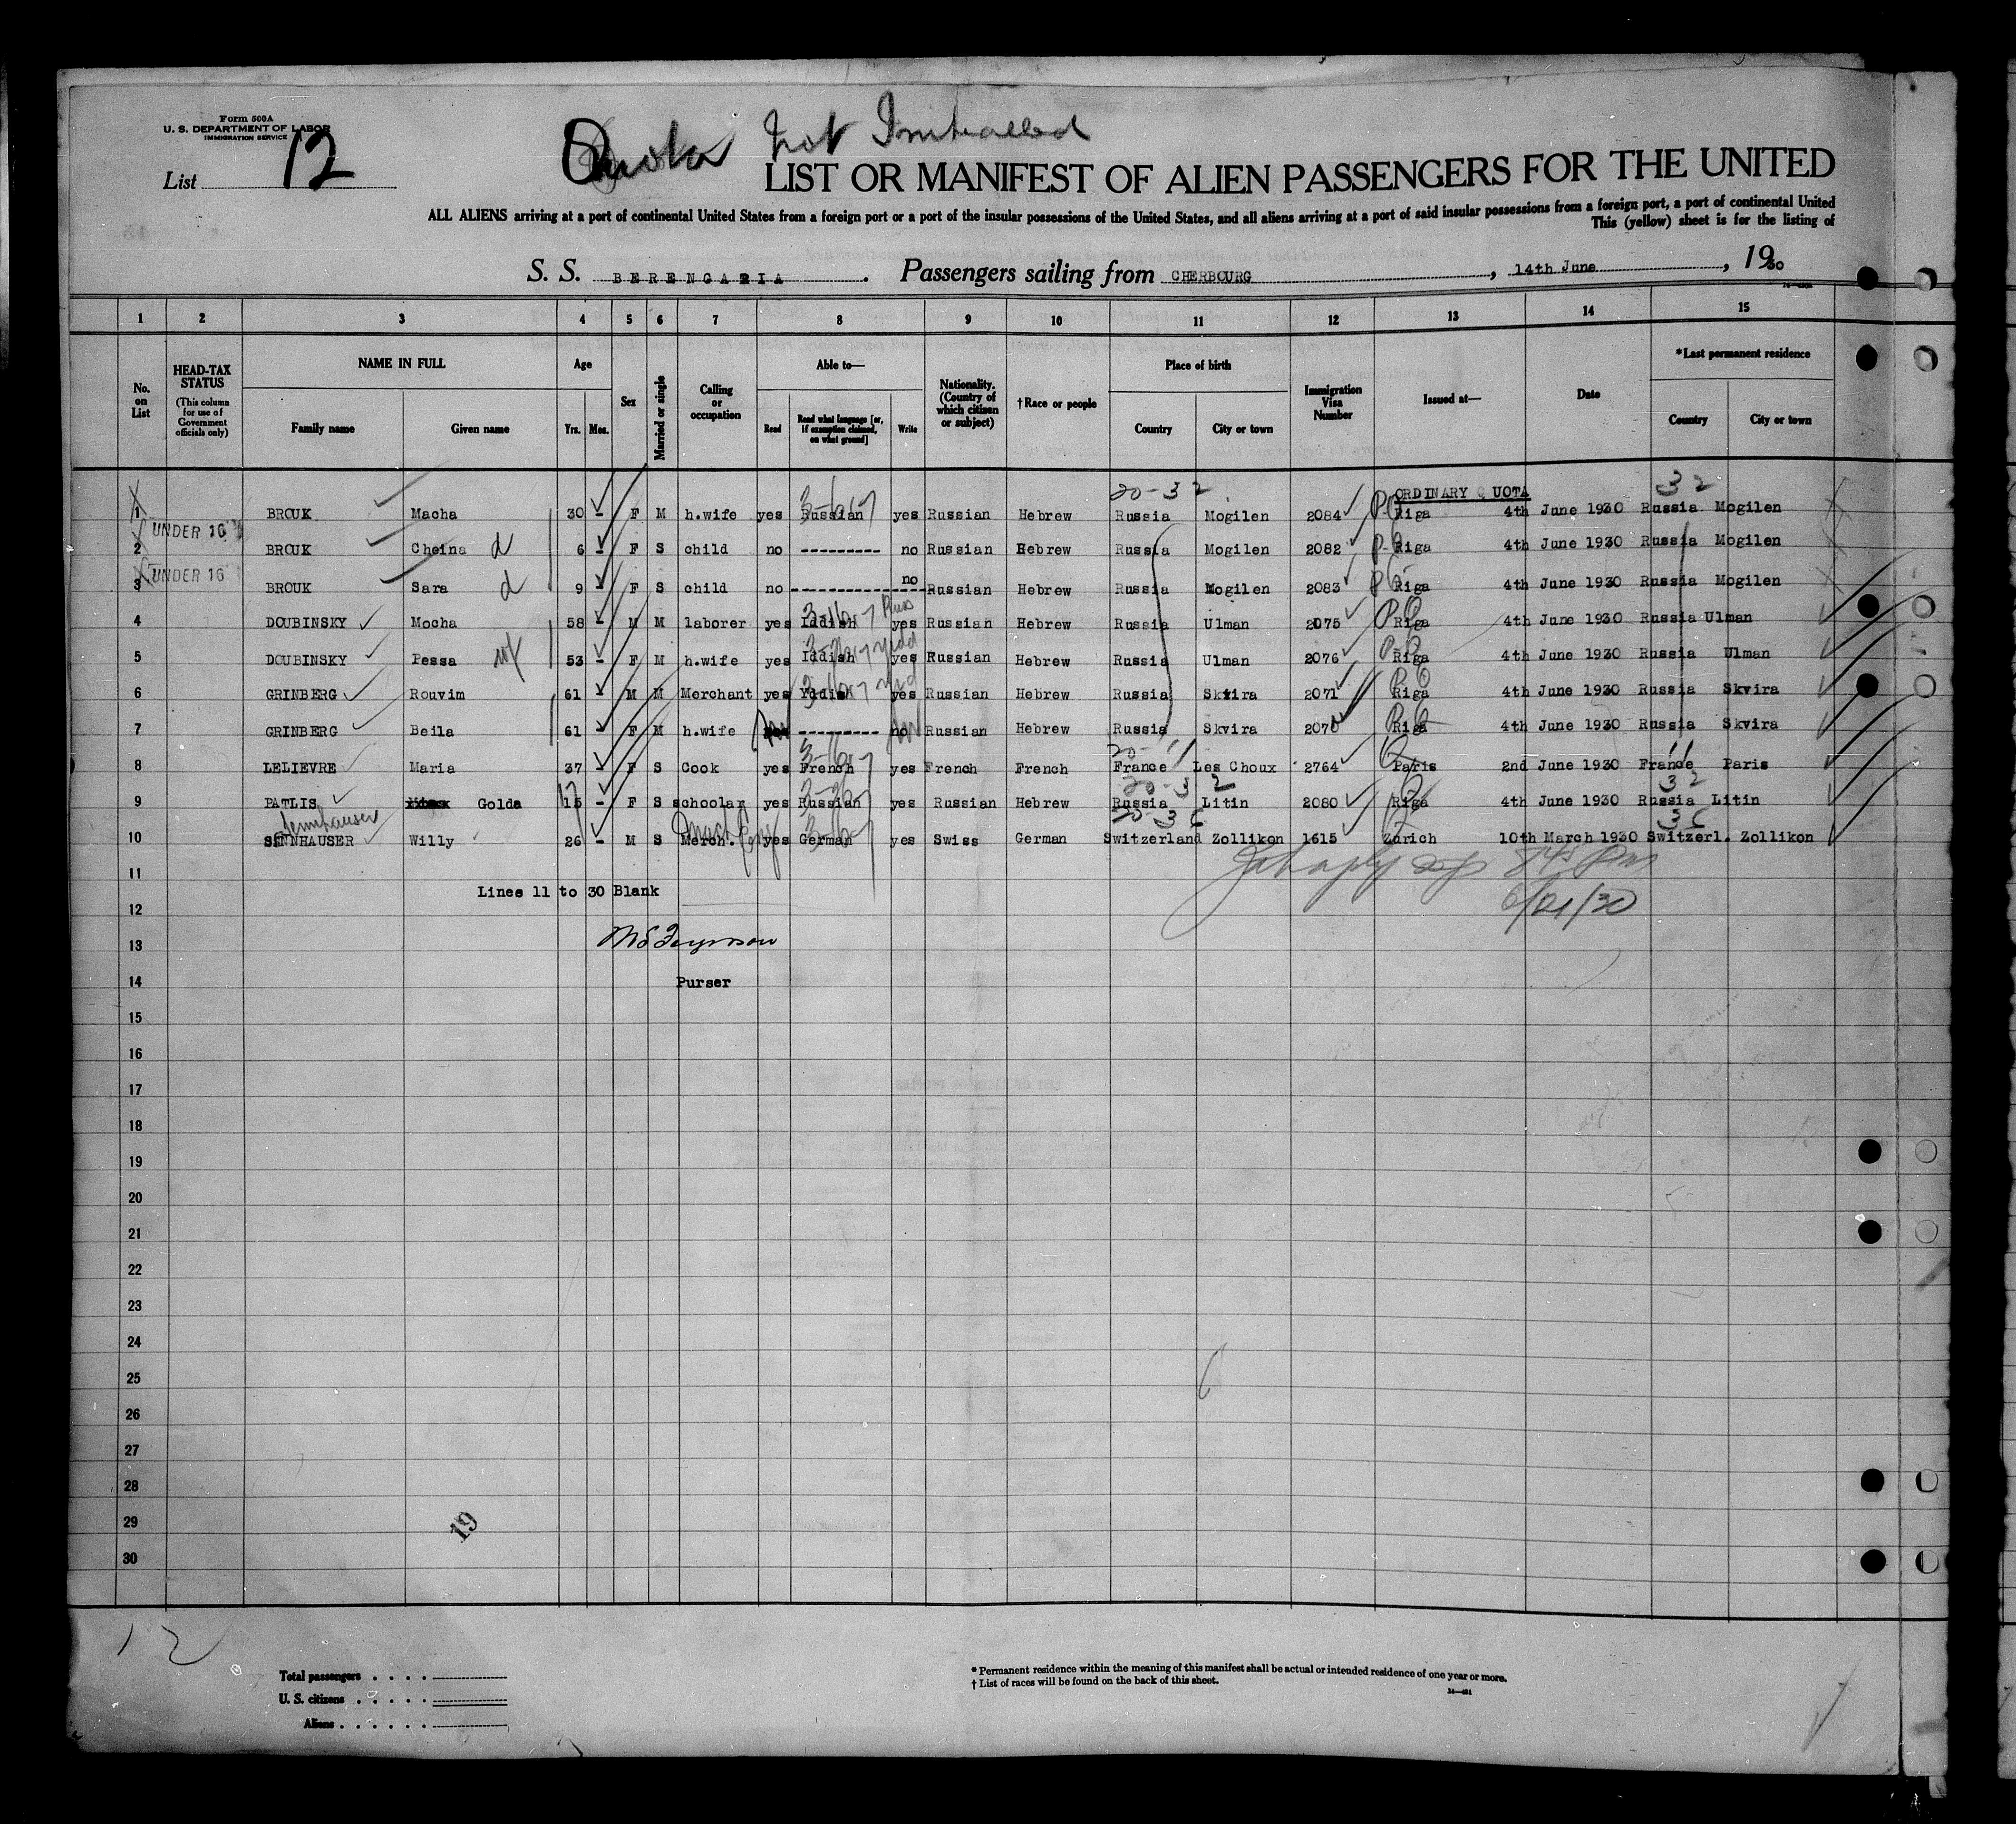 Form 500A
U. S. DEPARTMENT OF LABOR
IMMIGRATION SERVICE
List 12
Quota Not Initialled
LIST OR MANIFEST OF ALIEN PASSENGERS FOR THE UNITED
ALL ALIENS arriving at a port of continental United States from a foreign port or a port of the insular possessions of the United States, and all aliens arriving at a port of said insular possessions from a foreign port, a port of continental United
This (yellow) sheet is for the listing of
S. S. BERENGARIA. Passengers sailing from CHERBOURG, 14th June, 1930
1 2 3 4 5 6 7 8 9 10 11 12 13 14 15
No. on List
HEAD-TAX STATUS (This column for use of Government officials only)
NAME IN FULL
Family name Given name
Age
Yrs. Mos.
Sex
Married or single
Calling or occupation
Able to—
Read
Read what language [or, if exemption claimed, on what ground]
Write
Nationality. (Country of which citizen or subject)
†Race or people
Place of birth
Country City or town
Immigration Visa Number
Issued at—
Date
*Last permanent residence
Country City or town
20-3 2 ORDINARY QUOTA 3 2
1 BROUK Macha 30 - F M h.wife yes Russian yes Russian Hebrew Russia Mogilen 2084 Riga 4th June 1930 Russia Mogilen
UNDER 16
2 BROUK Cheina d 6 - F S child no --------- no Russian Hebrew Russia Mogilen 2082 Riga 4th June 1930 Russia Mogilen
UNDER 16
3 BROUK Sara d 9 - F S child no --------------- no Russian Hebrew Russia Mogilen 2083 Riga 4th June 1930 Russia Mogilen
4 DOUBINSKY Mocha 58 - M M laborer yes Iddish yes Russian Hebrew Russia Ulman 2075 Riga 4th June 1930 Russia Ulman
5 DOUBINSKY Pessa wf 53 - F M h.wife yes Iddish yes Russian Hebrew Russia Ulman 2076 Riga 4th June 1930 Russia Ulman
6 GRINBERG Rouvim 61 - M M Merchant yes Yddish yes Russian Hebrew Russia Skvira 2071 Riga 4th June 1930 Russia Skvira
7 GRINBERG Beila 61 - F M h.wife --------- no Russian Hebrew Russia Skvira 2070 Riga 4th June 1930 Russia Skvira
20- 11 11
8 LELIEVRE Maria 37 - F S Cook yes French yes French French France Les Choux 2764 Paris 2nd June 1930 France Paris
20-3 2 3 2
9 PATLIS Golda 15 - F S schoolar yes Russian yes Russian Hebrew Russia Litin 2080 Riga 4th June 1930 Russia Litin
Sennhauser 20-3 6 3 6
10 SENNHAUSER Willy 26 - M S Merch. yes German yes Swiss German Switzerland Zollikon 1615 Zurich 10th March 1930 Switzerl. Zollikon
11
Lines 11 to 30 Blank
12
6/21/30
13
14 Purser
15
16
17
18
19
20
21
22
23
24
25
26
27
28
29
19
30
12
Total passengers . . . .
U. S. citizens . . . . .
Aliens . . . . . .
* Permanent residence within the meaning of this manifest shall be actual or intended residence of one year or more.
† List of races will be found on the back of this sheet.